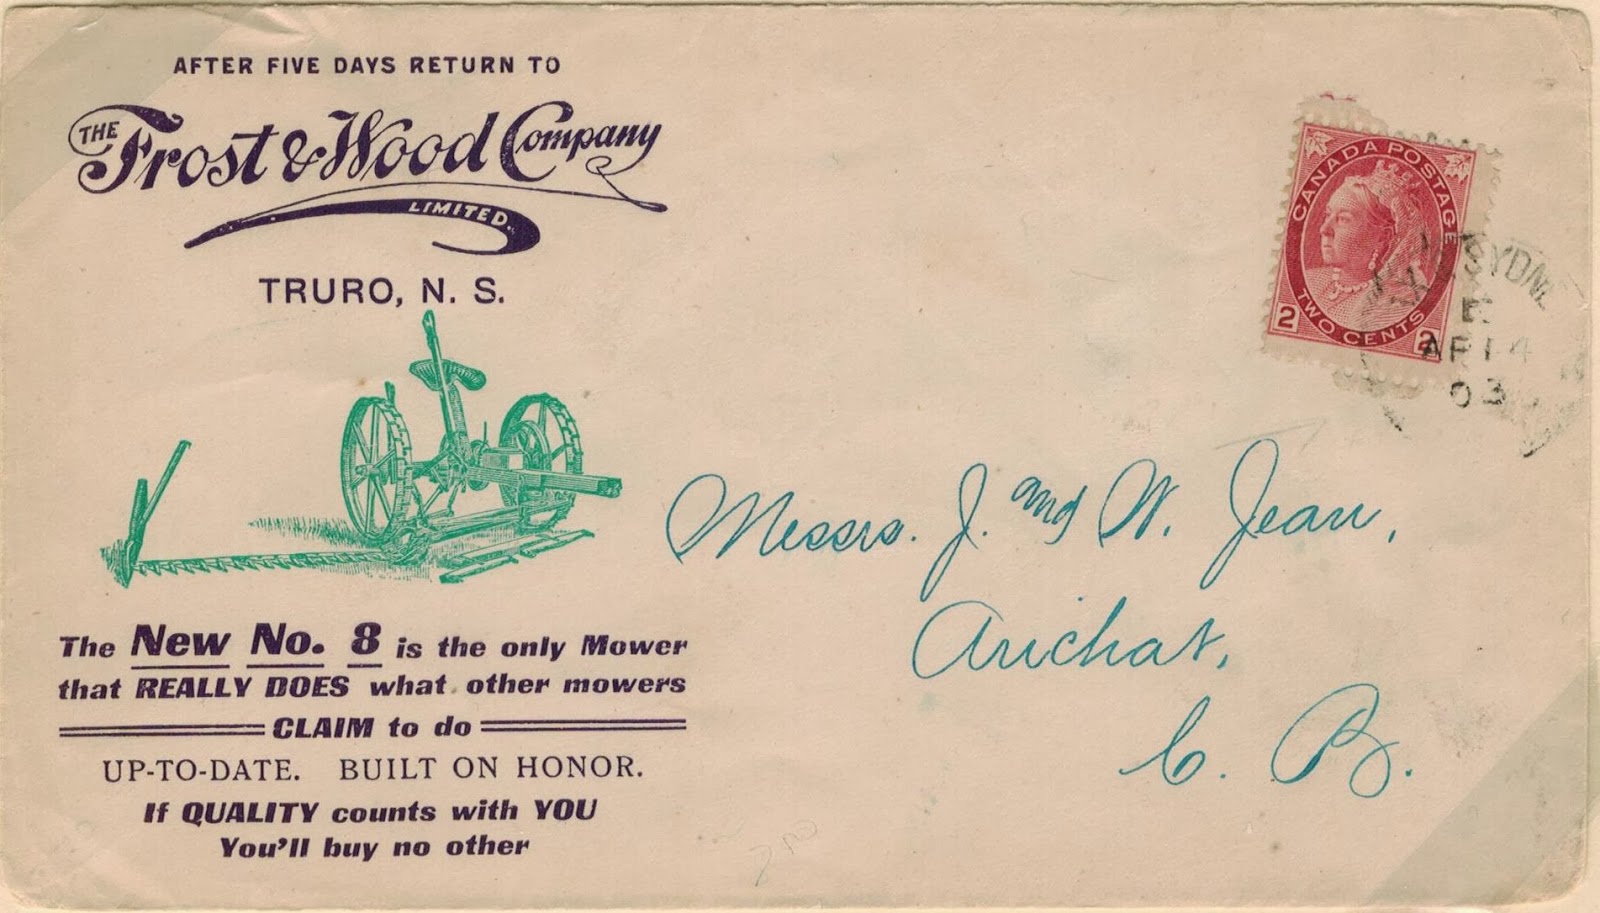 AFTER FIVE DAYS RETURN TO
THE Frost & Wood Company
LIMITED.
TRURO, N. S.
The New No. 8 is the only Mower
that REALLY DOES what other mowers
CLAIM to do
UP-TO-DATE. BUILT ON HONOR.
If QUALITY counts with YOU
You'll buy no other
CANADA POSTAGE
2 TWO CENTS 2
SYDNE
E
AP 14
03
Messrs. J. and W. Jean,
Arichat,
C. B.